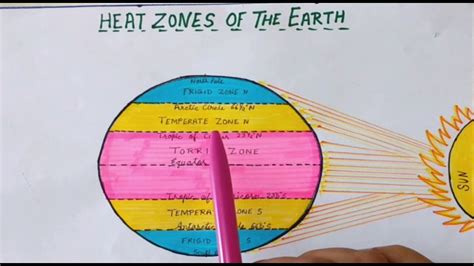 HEAT ZONES OF THE EARTH
North Pole
FRIGID ZONE N
Arctic Circle 66½°N
TEMPERATE ZONE N
Tropic of 23½°N
ZONE
Equator
Tropic of
TEMPERATE ZONE S
Antarctic
FRIGID S
SUN